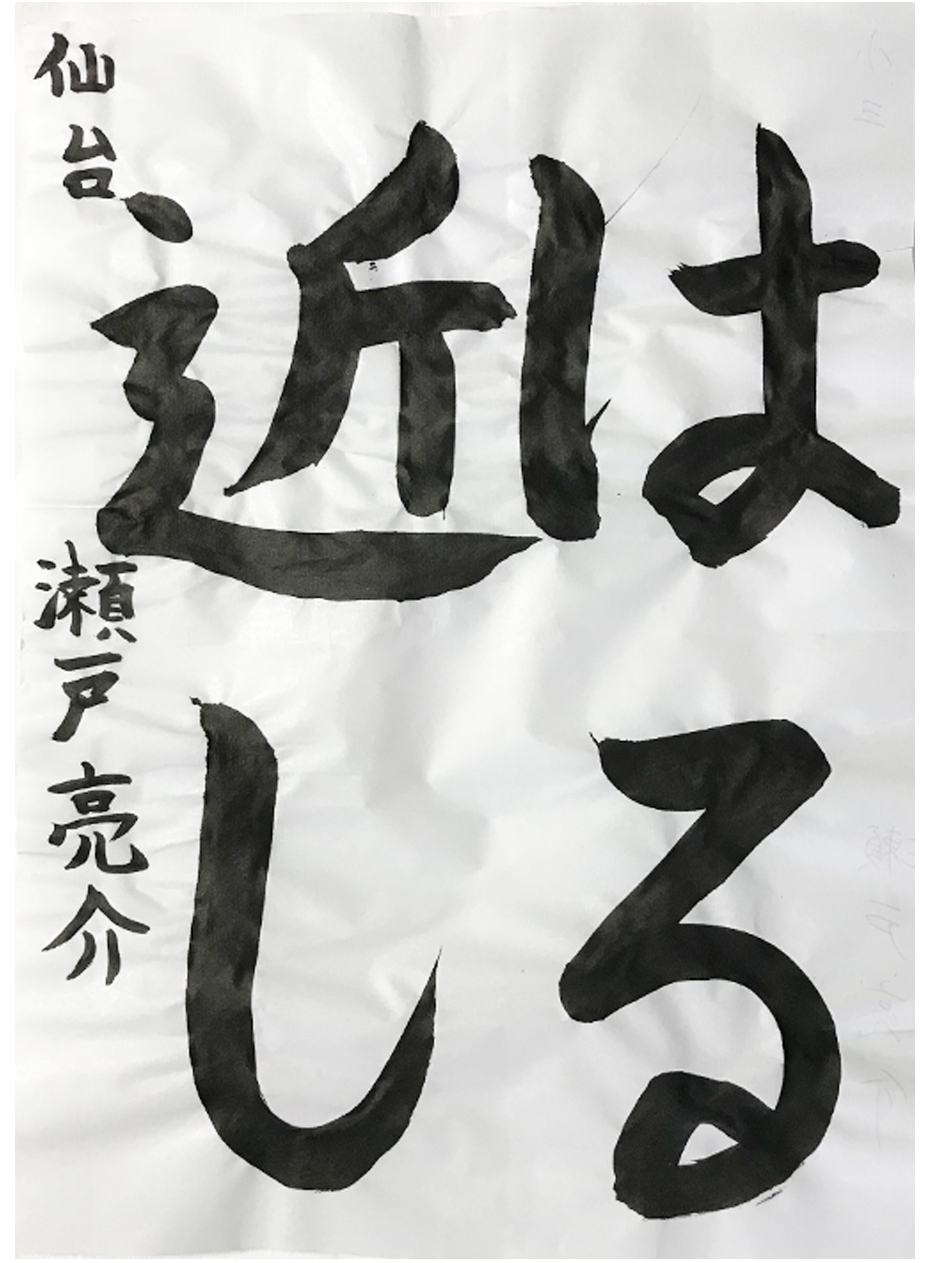 はる
近し
仙台 瀬戸亮介